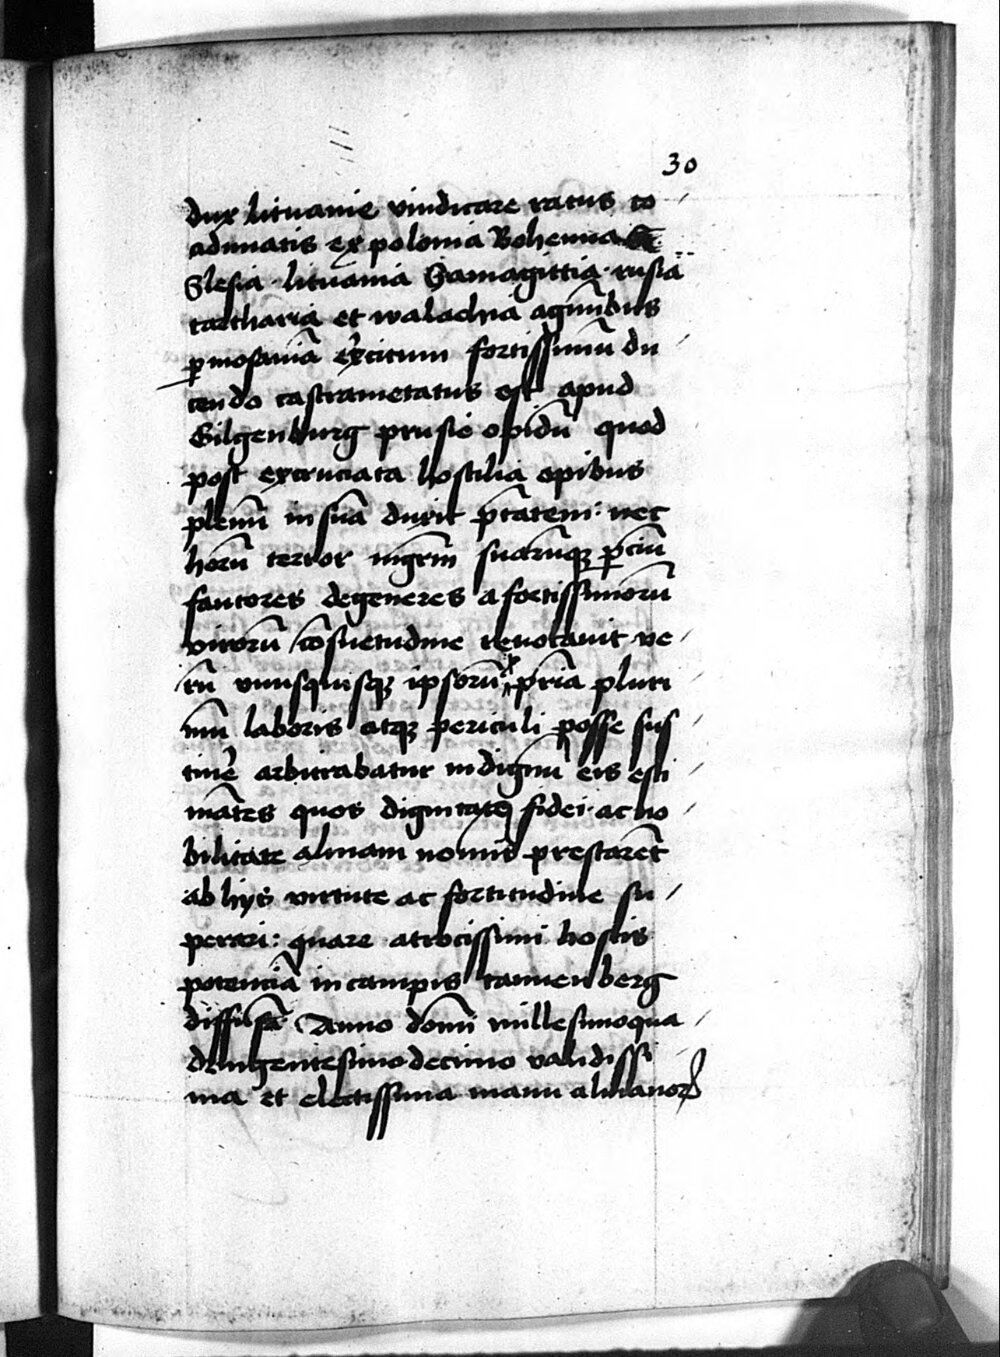 30
dux lituanie vindicare ratus co
adunatis ex polonia Bohemia
Slesia lituania Samagittia rusia
tartharia et walachia agmĩbus
ꝑ mosaniã exͬcitum fortissimũ du
cendo castrametatus est apud
Gilgenburg prusie opidũ quod
post excruciata hostilia opibus
plenũ in suã duxit ptãtem: nec
horũ terror suarũqꝫ
fautores degeneres a fortissimorũ
virorũ cõsuetudine revocavit ve
rũ unusquisqꝫ ipsorũ pr̃ia pluri
mũ laboris atqꝫ periculi posse sus
tine᷑ arbitrabatur indignũ eis esti
mãtes quos dignitate fidei ac no
bilitate almam prestarẽt
ab hijs virtute ac fortitudine su
perari: quare atrocissimi hostis
potenciã in campis tannenberg
diffusã Anno domĩ millesimoqua
dringentesimo decimo validissi
ma et electissima manu almanoꝝ